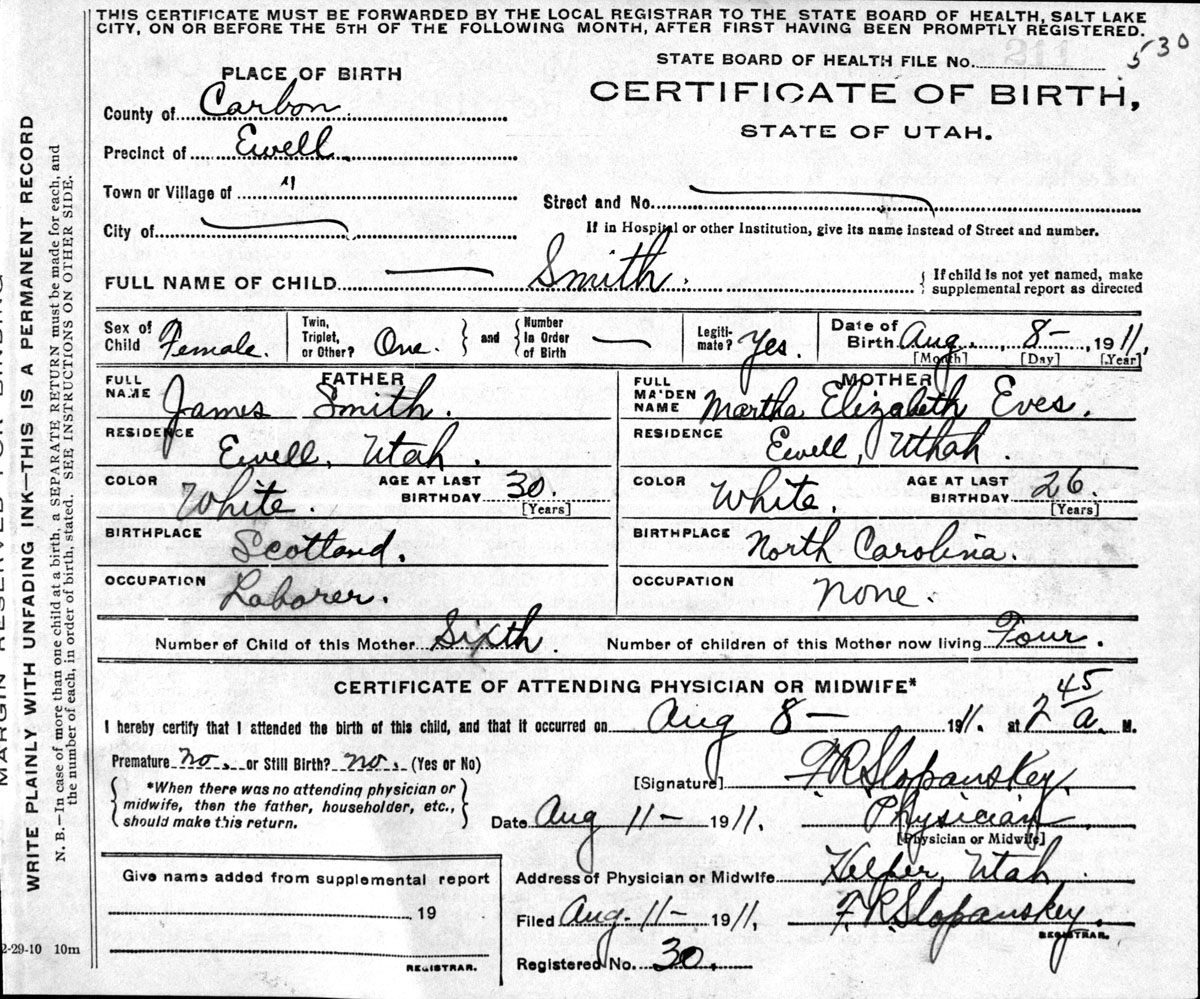 THIS CERTIFICATE MUST BE FORWARDED BY THE LOCAL REGISTRAR TO THE STATE BOARD OF HEALTH, SALT LAKE
CITY, ON OR BEFORE THE 5TH OF THE FOLLOWING MONTH, AFTER FIRST HAVING BEEN PROMPTLY REGISTERED.
STATE BOARD OF HEALTH FILE No. 530
PLACE OF BIRTH
CERTIFICATE OF BIRTH,
STATE OF UTAH.
County of Carbon
Precinct of Ewell
Town or Village of "
Street and No.
City of
If in Hospital or other Institution, give its name instead of Street and number.
FULL NAME OF CHILD Smith. { If child is not yet named, make
supplemental report as directed
Sex of Child Female. Twin, Triplet, or Other? One. } and { Number In Order of Birth — Legiti-mate? Yes. Date of Birth Aug 8- 1911,
[Month] [Day] [Year]
FATHER
FULL NAME James Smith.
RESIDENCE Ewell, Utah.
COLOR White. AGE AT LAST BIRTHDAY 30. [Years]
BIRTHPLACE Scotland.
OCCUPATION Laborer.
MOTHER
FULL MAIDEN NAME Martha Elizabeth Eves.
RESIDENCE Ewell, Uthah.
COLOR White. AGE AT LAST BIRTHDAY 26. [Years]
BIRTHPLACE North Carolina.
OCCUPATION None.
Number of Child of this Mother Sixth. Number of children of this Mother now living Four.
CERTIFICATE OF ATTENDING PHYSICIAN OR MIDWIFE*
I hereby certify that I attended the birth of this child, and that it occurred on Aug 8 — 1911. at 2 45 a. M.
Premature no. or Still Birth? no. (Yes or No)
[Signature] F. R. Slopanskey.
{ *When there was no attending physician or
midwife, then the father, householder, etc.,
should make this return. }
Date Aug 11- 1911. Physician
[Physician or Midwife]
Address of Physician or Midwife Helper, Utah.
Filed Aug. 11- 1911. F. R. Slopanskey.
REGISTRAR.
Registered No. 30.
Give name added from supplemental report
19
REGISTRAR.
2-29-10 10m
MARGIN RESERVED FOR BINDING
WRITE PLAINLY WITH UNFADING INK—THIS IS A PERMANENT RECORD
N. B.—In case of more than one child at a birth, a SEPARATE RETURN must be made for each, and
the number of each, in order of birth, stated. SEE INSTRUCTIONS ON OTHER SIDE.